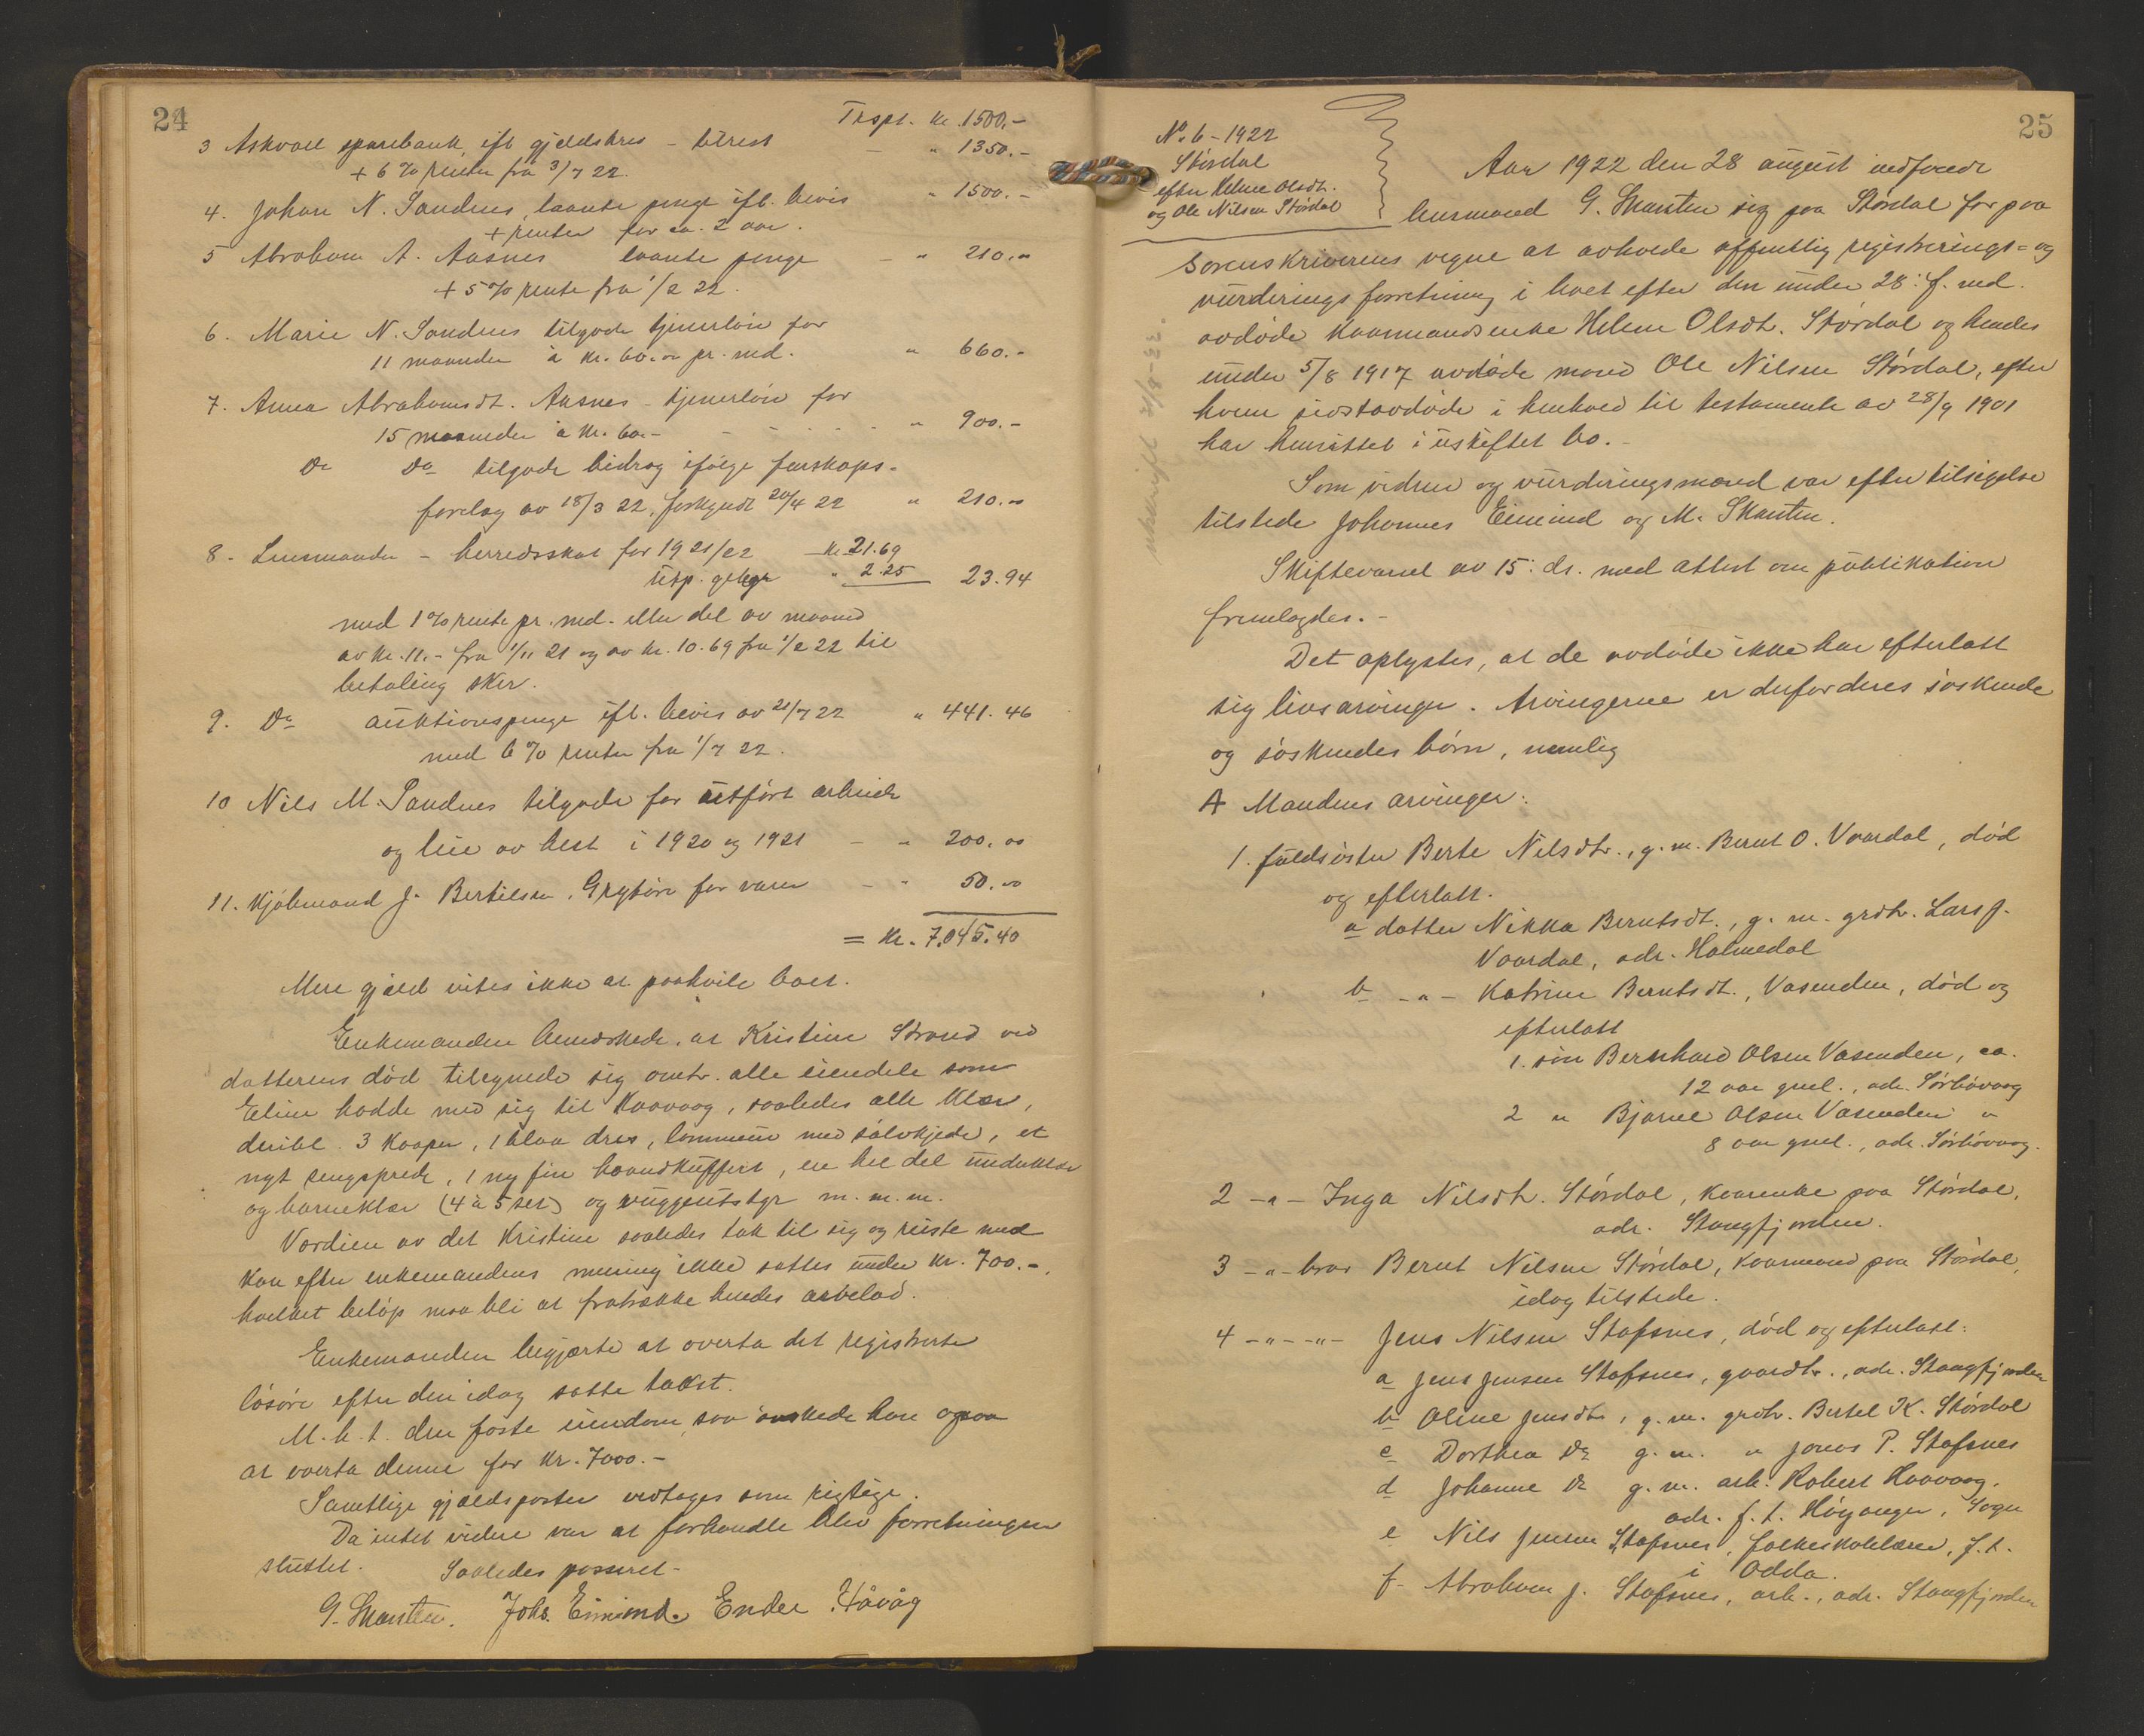 24
Trspt. kr. 1500.-
3 Askvoll sparebank ifl gjeldsbrev - tilrest - " 1350.-
+ 6 % renter fra 3/7 22.
4. Johan N. Sandnes, laante penge ifl. bevis " 1500.-
+ renter for ca. 2 aar.
5 Abraham A. Aasnes laante penge - " 210.00
+ 5 % rente fra 1/2 22.
6. Marie N. Sandnes tilgode tjenerløn for
11 maaneder à kr. 60.00 pr. md. " 660.-
7. Anna Abrahamsdt. Aasnes - tjenerløn for
15 maaneder à kr. 60.- - - - - " 900.-
Do Do tilgode bidrag ifølge farskaps-
forelæg av 18/3 22, forkyndt 20/4 22 " 210.00
8. Lensmanden - herredsskat for 1921/22 kr 21.69
utp. gebyr " 2.25 23.94
med 1 % rente pr. md. eller del av maaned
av kr. 11.- fra 1/11 21 og av kr. 10.69 fra 1/2 22 til
betaling sker.
9. Do auktionspenge ifl. bevis av 21/7 22 " 441.46
med 6 % renter fra 1/7 22.
10 Nils M. Sandnes tilgode for utført arbeide
og leie av hest i 1920 og 1921 - " 200.00
11. Kjøbmand J. Bertilsen, Grytøir for varer - " 50.00
= Kr. 7.045.40
Mere gjæld vites ikke at paahvile boet.
Enkemanden bemerkede, at Kristine Strand ved
datterens død tilegnede sig omtr. alle eiendele som
Eline hadde med sig til Haavaag, saaledes alle klær,
deribl. 3 kaaper, 1 blaa dres, lommeur med sølvkjede, et
nyt sengeprede, 1 ny fin haandkuffert, en hel del underklær
og barneklær (4 à 5 set) og vuggeutstyr m. m. m.
Værdien av det Kristine saaledes tok til sig og reiste med
kan efter enkemandens mening ikke sættes under kr. 700.-,
hvilket beløp maa bli at fratrække hendes arvelod.
Enkemanden begjærte at overta det registrerte
løsøre efter den idag satte takst.
M.h.t. den faste eiendom, saa ønskede han ogsaa
at overta denne for kr. 7000.-
Samtlige gjældsposter vedtages som rigtige.
Da intet videre var at forhandle blev forretningen
sluttet. Saaledes passeret -
G. Skarsten. Johs. Eimind. Endre Håvåg
25
No. 6 - 1922
Stórdal
efter Helene Olsdt.
og Ole Nilsen Stórdal
Aar 1922 den 28 august indfandt
lensmand G. Skarsten sig paa Stórdal for paa
sorenskriverens vegne at avholde offentlig registrerings- og
vurderingsforretning i boet efter den under 28. f. md.
avdøde kaarmandsenke Helene Olsdt. Stórdal og hendes
under 5/8 1917 avdøde mand Ole Nilsen Stórdal, efter
hvem sidstavdøde i henhold til testamente av 28/9 1901
har hensittet i uskiftet bo.-
Som vidner og vurderingsmænd var efter tilsigelse
tilstede Johannes Eimind og M. Skarsten.
Skiftevarsel av 15. ds. med attest om publikation
fremlagdes.-
Det oplystes, at de avdøde ikke har efterlatt
sig livsarvinger. Arvingerne er derfor deres søskende
og søskendes børn, nemlig
A Mandens arvinger:
1. fuldsøster Berte Nilsdtr., g. m. Bernt O. Vaardal, død
og efterlatt.
a datter Nikka Berntsdt., g. m. grdbr. Lars J.
Vaardal, adr. Holmedal
b - " - Katrine Berntsdt., Vasenden, død og
efterlatt
1. søn Bernhard Olsen Vasenden, ca.
12 aar gml., adr. Sørbøvaag
2 " Bjarne Olsen Vasenden "
8 aar gml., adr. Sørbøvaag.
2 - " - Inga Nilsdtr. Stórdal, kaarenke paa Stórdal,
adr. Stangfjorden.
3 - " - bror Bernt Nilsen Stórdal, kaarmand paa Stórdal,
idag tilstede.
4 - " - - " - Jens Nilsen Stafsnes, død og efterlatt:
a Jens Jensen Stafsnes, gaardbr., adr. Stangfjorden
b Oline Jensdtr, g. m. grdbr. Bertel K. Stórdal
c Dorthea Do g. m. " Jonas P. Stafsnes
d Johanne Do g. m. arb. Robert Haavaag,
adr. f. t. Høyanger, Sogn
e Nils Jensen Stafsnes, folkeskolelærer, f. t.
i Odda.
f. Abraham J. Stafsnes, arb., adr. Stangfjorden